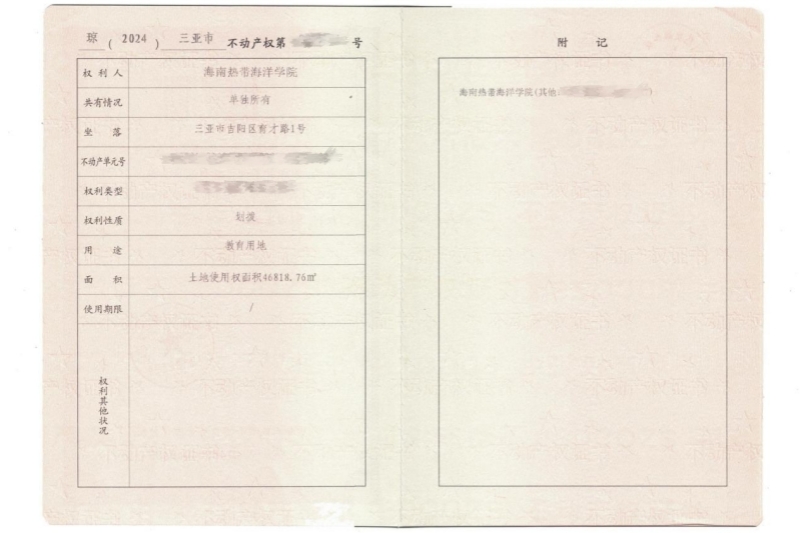 琼(2024)三亚市不动产权第 号
权利人 海南热带海洋学院
共有情况 单独所有
坐落 三亚市吉阳区育才路1号
不动产单元号
权利类型
权利性质 划拨
用途 教育用地
面积 土地使用权面积46818.76㎡
使用期限 /
权利其他状况
附记
海南热带海洋学院(其他: )